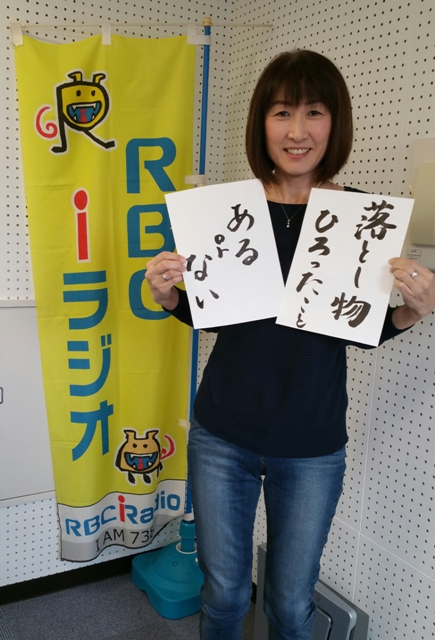 RBC
iラジオ
RBC iRadio
AM 738
落とし物
ひろったこと
ある
or
ない